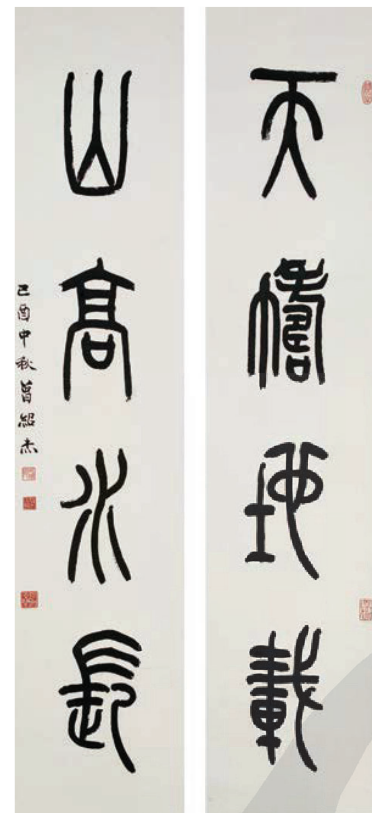 天幬地載
山高水長
己酉中秋曾紹杰